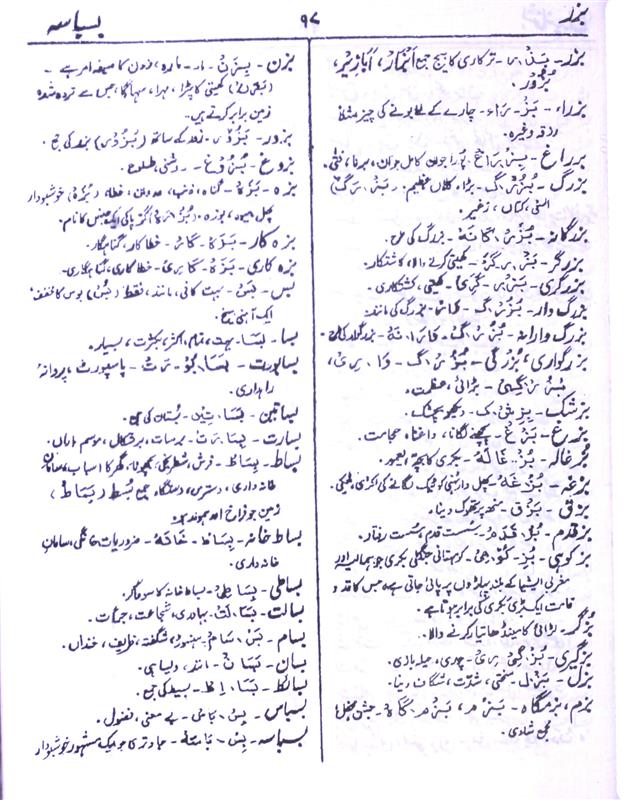 بزر
۹۷
بسباسہ
بزر - بَزْ، ر - ترکاری کا بیج جمع اَبْزَار، اَبَازِیر،
بُزُور
بزراء - بَزْ - رَاء - چارے کے لئے بونے کی چیز مثلاً
وغیرہ -
بزرگ - بُزُرْ، گ - بڑا، کلاں، عظیم -
بزرگانہ - بُزُرْ، گَانَہ - بزرگ کی طرح -
بزرگر - بَزْ، رِ گَر - کھیتی کرنے والا، کاشتکار -
بزرگری - بَزْ، رِ - گَرِی - کھیتی، کاشتکاری -
بزرگ وار - بُزُرْ، گ - وَار - بزرگ کی مانند -
بزرگ وارانہ - بُزُرْ، گ - وَارَا، نَہ -
بزرگواری، بُزُرگی - بُزُرْ، گ - وَا، رِی،
بُزُرْ، گِی - بڑائی، عظمت -
بزشک - بِزِشْ، ک - دیکھو پجشک -
بزغ - بَزْ، غ - پچھنے لگانا، حجامت -
بُزغالہ - بُزْ، غَالَہ - بکری کا بچہ،
بزق - بَزْ، ق - منھ پر تھوک دینا -
بزقدم - بُز، قَدَم - سست قدم، سست رفتار -
بز کوہی - بُزِ - کُوْ، ہِی - کوہستانی جنگلی بکری جو ہمالیہ اور
مغربی ایشیا کے بلند پہاڑوں پر پائی جاتی ہے، جس کا قد و
قامت ایک بڑی بکری کے برابر ہوتا ہے -
بُزگر - لڑائی کا مینڈھا تیار کرنے والا -
بزگیری - بُزْ، گِی، رِی - چوری، حیلہ بازی -
بزل - بَزْ، ل - سختی، شدت، شگاف دینا -
بزم، بزمگاہ - بَزْ، م، بَزْ، م گَاہ - جشن، محفل،
مجلس شادی -
بزن - بِزَن - مار، زدن کا صیغہ امر ہے -
کھیتی کا پٹرا، سہاگا، جس سے تردہ شدہ
زمین برابر کرتے ہیں -
بزور -
بزوغ - بُزُوْ، غ - روشنی، طلوع -
بزہ - بَزَہ - گناہ، خطا، خوشبودار
پھل، میوہ، بوزہ -
بزہ کار - بَزَہ - کَار - خطا کار، گناہگار -
بزہ کاری - بَزَہ - کَا، رِی - خطا کاری، گناہگاری -
بس - بَس - بہت، کافی، مانند، فقط، بوس کا مخفف،
ایک آہنی سیخ -
بسا - بَسَا - بہت، تمام، اکثر، بکثرت، بسیار -
بساپورت - بَسَا، پُو، رَت - پاسپورٹ، پروانۂ
راہداری -
بساتین - بَسَا، تِیْن - بُستان کی جمع -
بسارت - بَسَا، رَت - برسات، برشکال، موسم باراں -
بساط - بِسَاط - فرش، شطرنجی، بچھونا، گھر کا اسباب، سامان
خانہ داری، دسترس، دستگاہ جمع بُسط (بَسَاط)
زمین جو فراخ اور ہموار ہو -
بساط خانہ - بِسَاط - خَانَہ - ضروریات خانگی، سامان
خانہ داری -
بساطی - بِسَا، طِی - بساط خانہ کا سوداگر -
بسالت - بَسَا، لَت - بہادری، شجاعت، جرأت -
بسام - بَسْ، سَام - ہنسوڑ، شگفتہ، ظریف، خنداں -
بسان - بَسَان - مانند، ویسا ہی -
بسائط - بَسَا، اِط - بسیط کی جمع -
بسباس - بَسْ، بَاس - بے معنی، فضول -
بسباسہ - بَسْ، بَاسَہ - جاوتری جو ایک مشہور خوشبودار